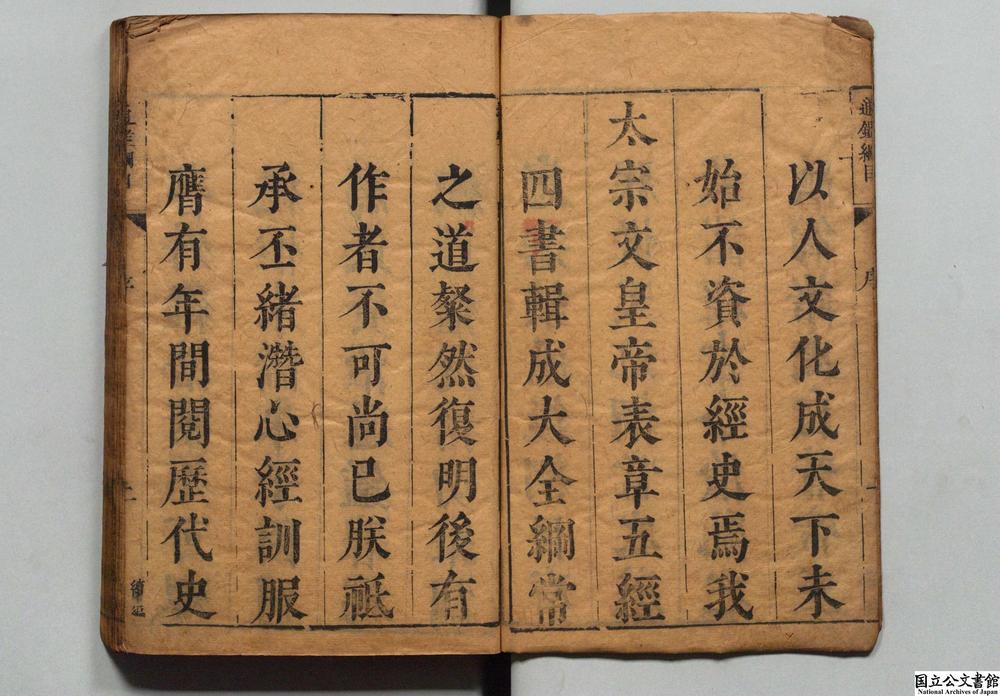 通鑑綱目
序
一
以人文化成天下未
始不資於經史焉我
太宗文皇帝表章五經
四書輯成大全綱常
之道粲然復明後有
作者不可尚已朕祗
承丕緒潛心經訓服
膺有年間閱歷代史
序
二
續編
国立公文書館
National Archives of Japan